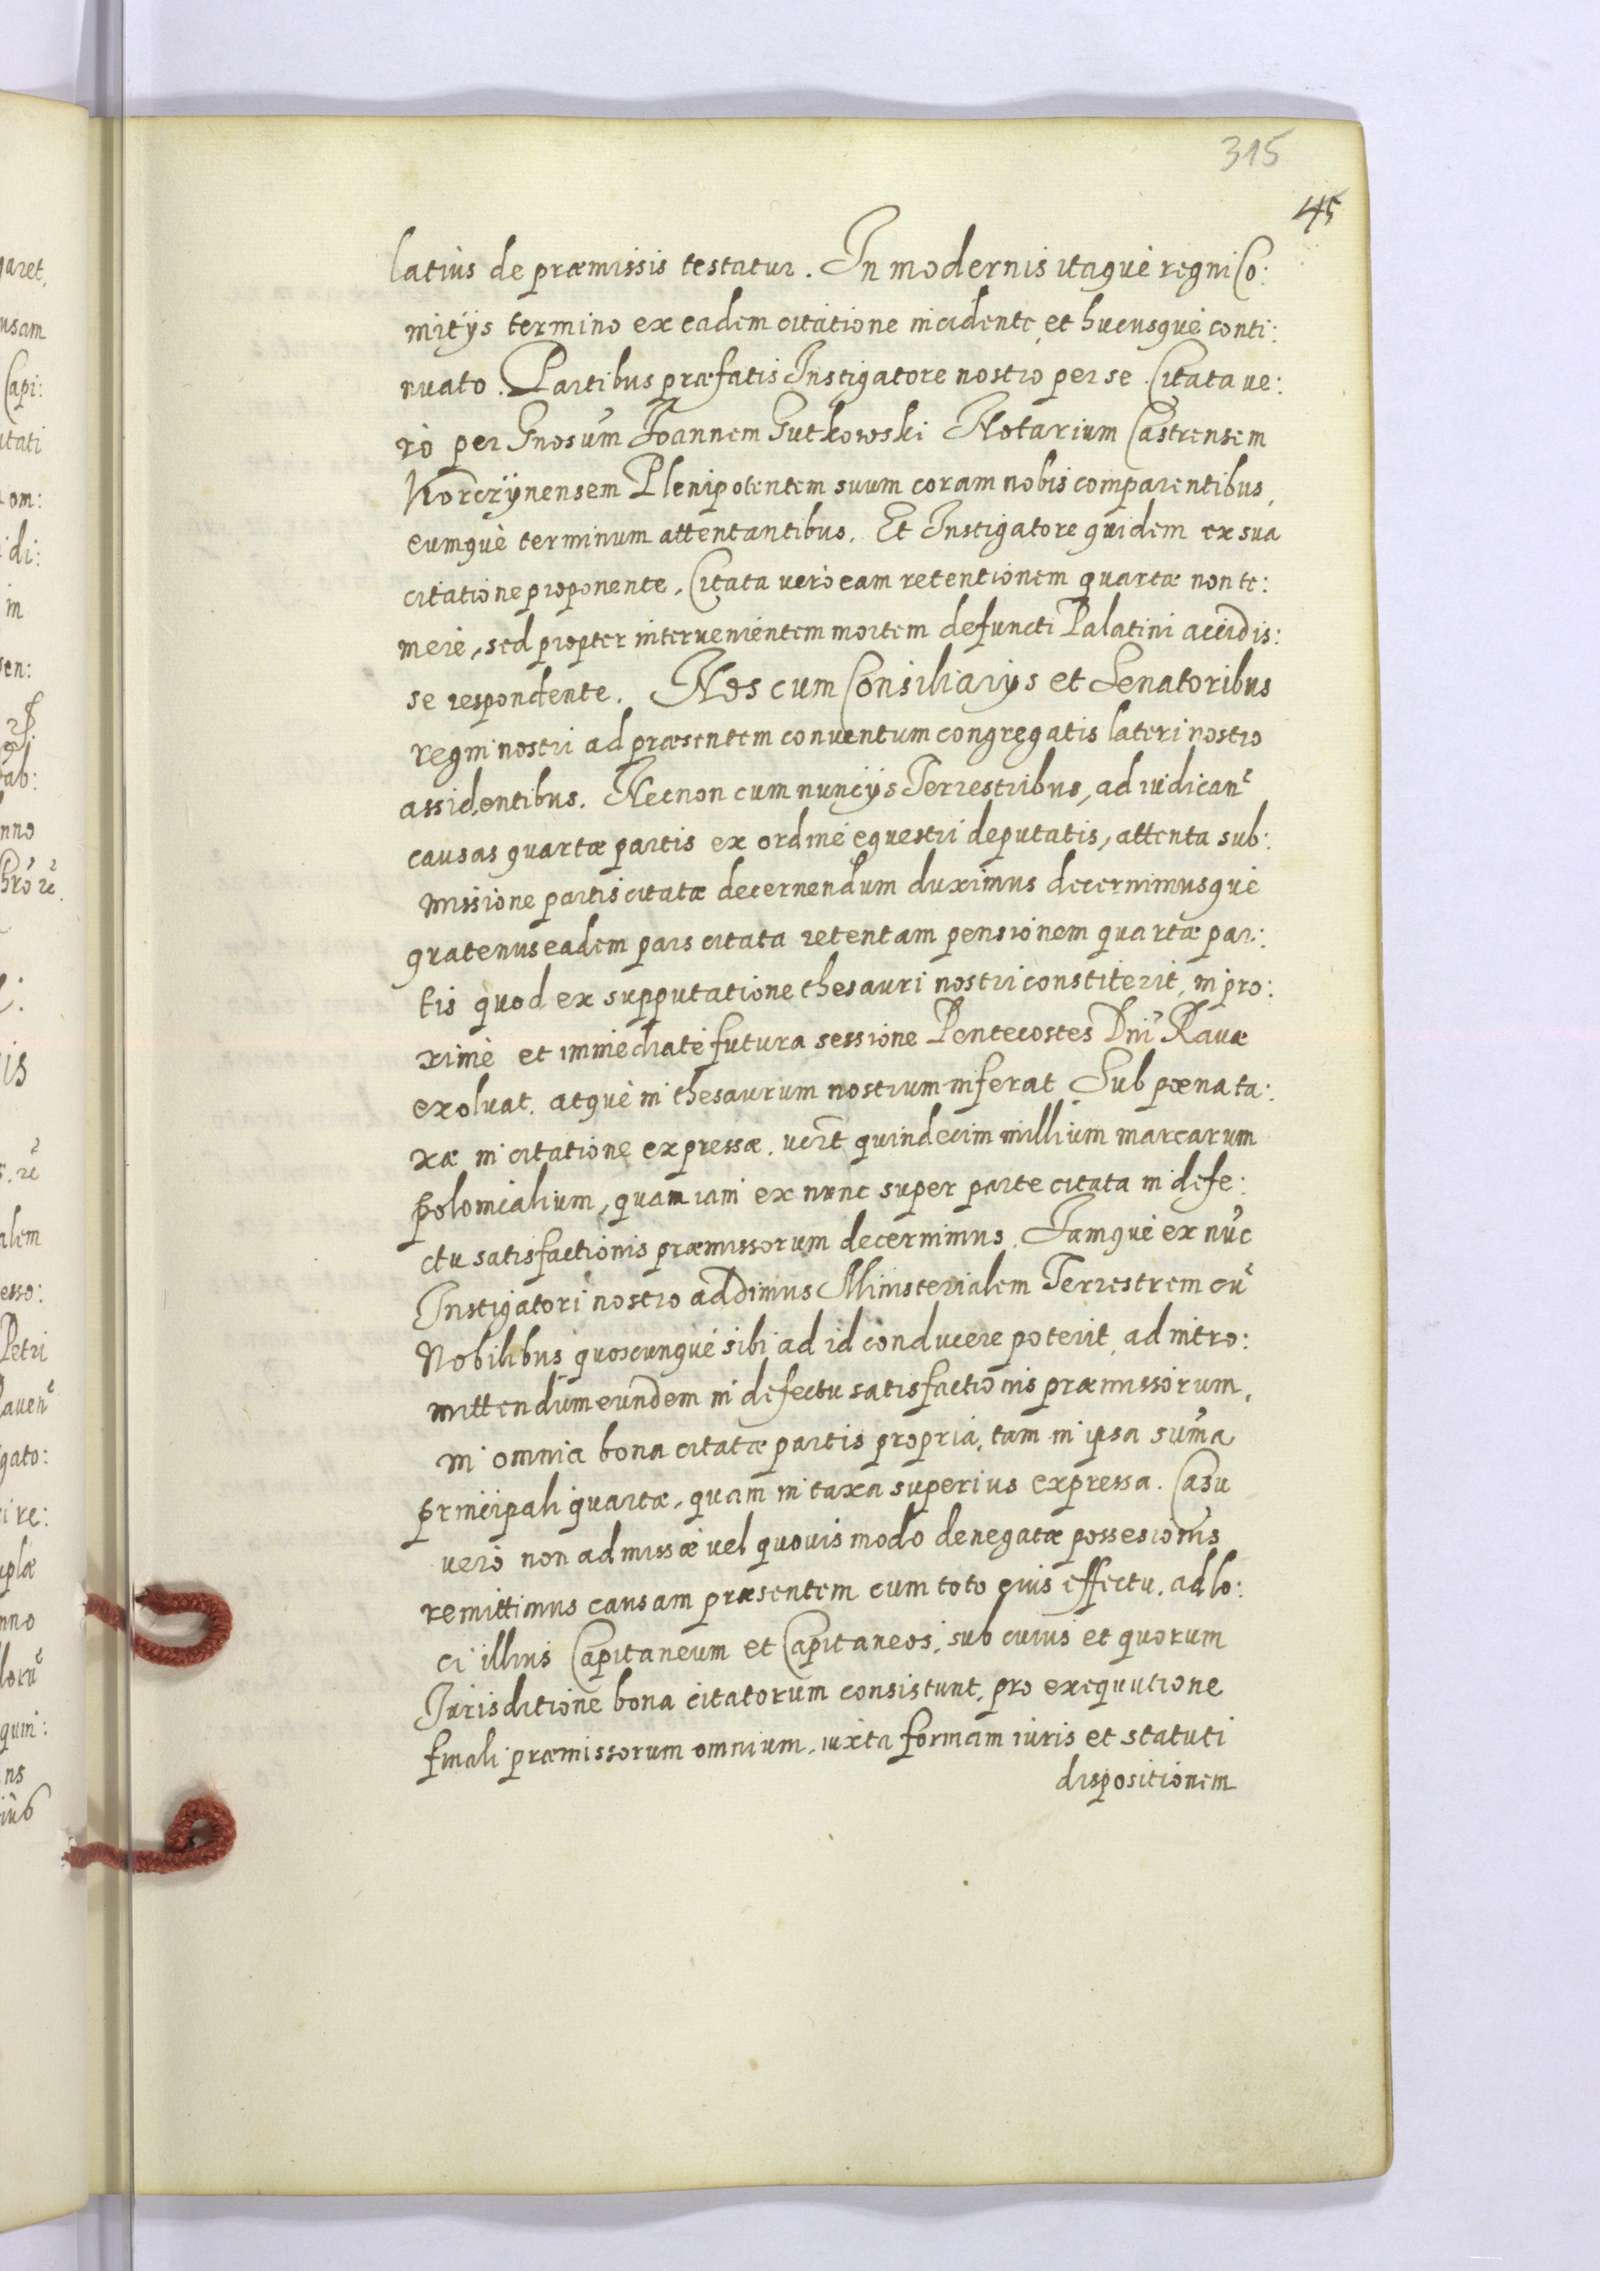 315
45
latius de præmissis testatur. In modernis itaque regni Co:
mitys termino ex eadem citatione incidente, et hucusque conti:
nuato. Partibus præfatis Instigatore nostro per se. Citata ve:
rò per Gnosum Joannem Gutkowski Notarium Castrensem
Korczynensem Plenipotentem suum coram nobis comparentibus,
eumque terminum attentantibus. Et Instigatore quidem ex sua
citatione proponente. Citata verò eam retentionem quartæ non te:
merè, sed propter intervenientem mortem defuncti Palatini accidis:
se respondente. Nos cum Consiliarys et Senatoribus
regni nostri ad præsentem conventum congregatis lateri nostro
assidentibus. Necnon cum nuncys Terrestribus, ad iudican
causas quartæ partis ex ordine equestri deputatis, attenta sub:
missione partis citatæ decernendum duximus decernimusque
quatenus eadem pars citata retentam pensionem quartæ par:
tis quod ex supputatione thesauri nostri constiterit, in pro:
ximè et immediatè futura sessione Pentecostes Dni Ravæ
exolvat. atque in thesaurum nostrum inferat Sub pœna ta:
xæ in citatione expressæ. vert quindecim millium marcarum
polonicalium, quam iam ex nunc super parte citata in defe:
ctu satisfactionis præmissorum decernimus. Jamque ex nuc
Instigatori nostro addimus Ministerialem Terrestrem cu
Nobilibus quoscunque sibi ad id conducere poterit, ad intro:
mittendum eundem in defectu satisfactionis præmissorum,
in omnia bona citatæ partis propria, tam in ipsa suma
principali quartæ, quam in taxa superius expressa. Casu
verò non admissæ vel quovis modo denegatæ possesionis
remittimus causam præsentem cum toto eius effectu. ad lo:
ci illius Capitaneum et Capitaneos, sub cuius et quorum
Jurisditione bona citatorum consistunt, pro exequutione
finali præmissorum omnium, iuxta formam iuris et statuti
dispositionem